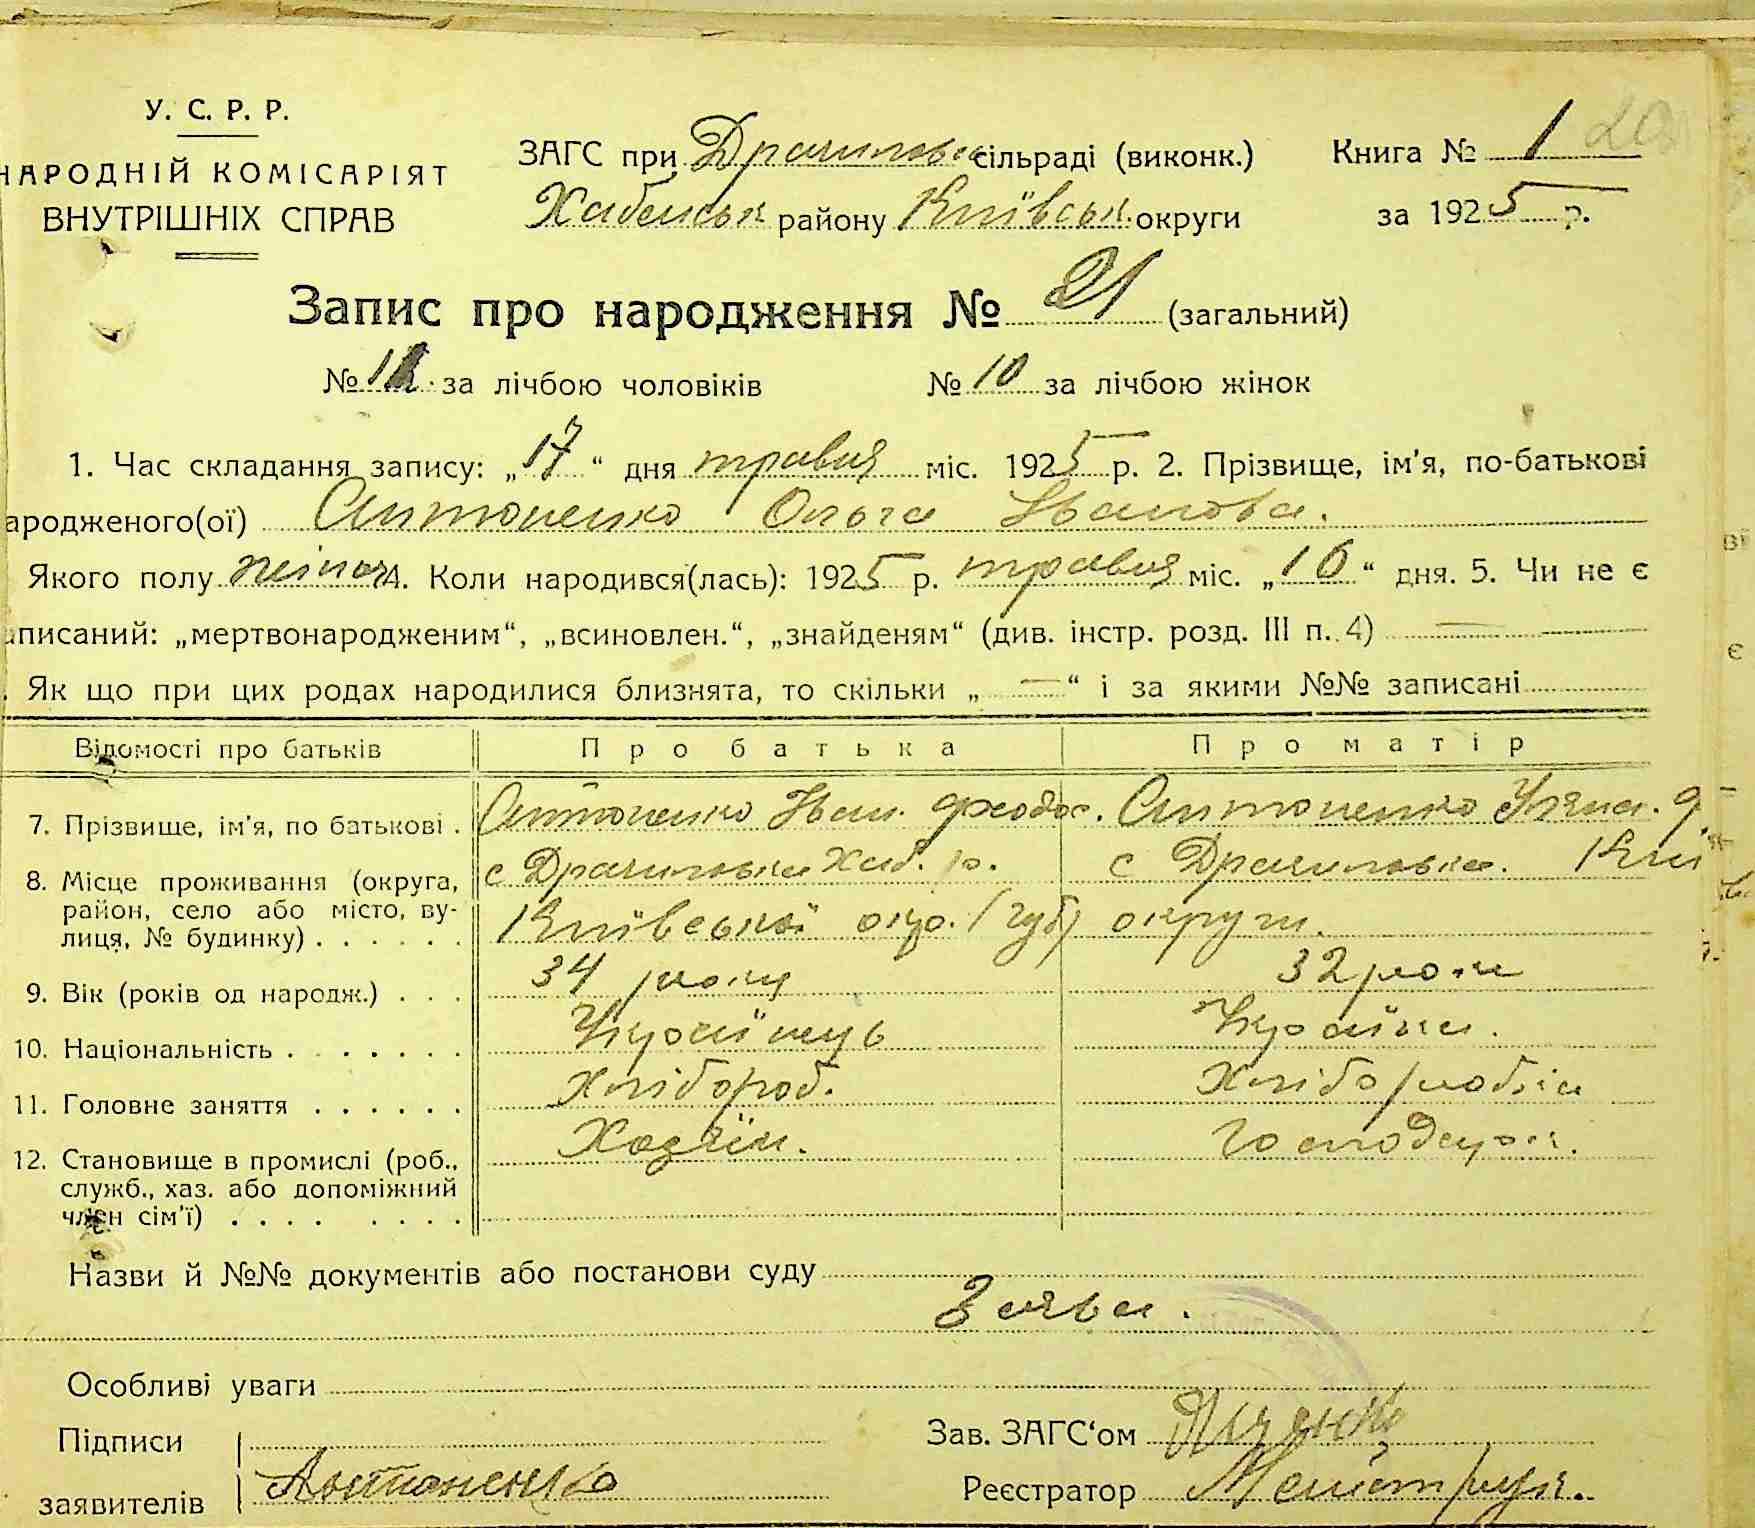 У. С. Р. Р.
НАРОДНІЙ КОМІСАРІЯТ
ВНУТРІШНІХ СПРАВ
ЗАГС при Драчиловс сільраді (виконк.)
Хабенськ району Київськ. округи
Книга № 1 20
за 1925 р.
Запис про народження № 21 (загальний)
№ 11 за лічбою чоловіків № 10 за лічбою жінок
1. Час складання запису: „17“ дня травня міс. 1925 р. 2. Прізвище, ім'я, по-батькові
ародженого(ої) Антоненко Ольга Іванова.
Якого полу жіноч 4. Коли народився(лась): 1925 р. травня міс. „16“ дня. 5. Чи не є
аписаний: „мертвонародженим“, „всиновлен.“, „знайденям“ (див. інстр. розд. III п. 4) —
Як що при цих родах народилися близнята, то скільки „—“ і за якими №№ записані
Відомості про батьків Про батька Про матір
7. Прізвище, ім'я, по батькові . Антоненко Іван. Феодос. Антоненко Уляна. Ф.
8. Місце проживання (округа, район, село або місто, вулиця, № будинку) . . . . . . с Драчиловка Хаб. р. Київської окр. (губ) с Драчиловка. Киї округи.
9. Вік (років од народж.) . . . 34 роки 32 роки
10. Національність . . . . . . . Українець Українка.
11. Головне заняття . . . . . . Хлібороб. Хліборобка
12. Становище в промислі (роб., служб., хаз. або допоміжний член сім'ї) . . . . . . . . Хазяїн. Господарк.
Назви й №№ документів або постанови суду
Заява.
Особливі уваги
Підписи
заявителів Антоненко
Зав. ЗАГС'ом
Реєстратор